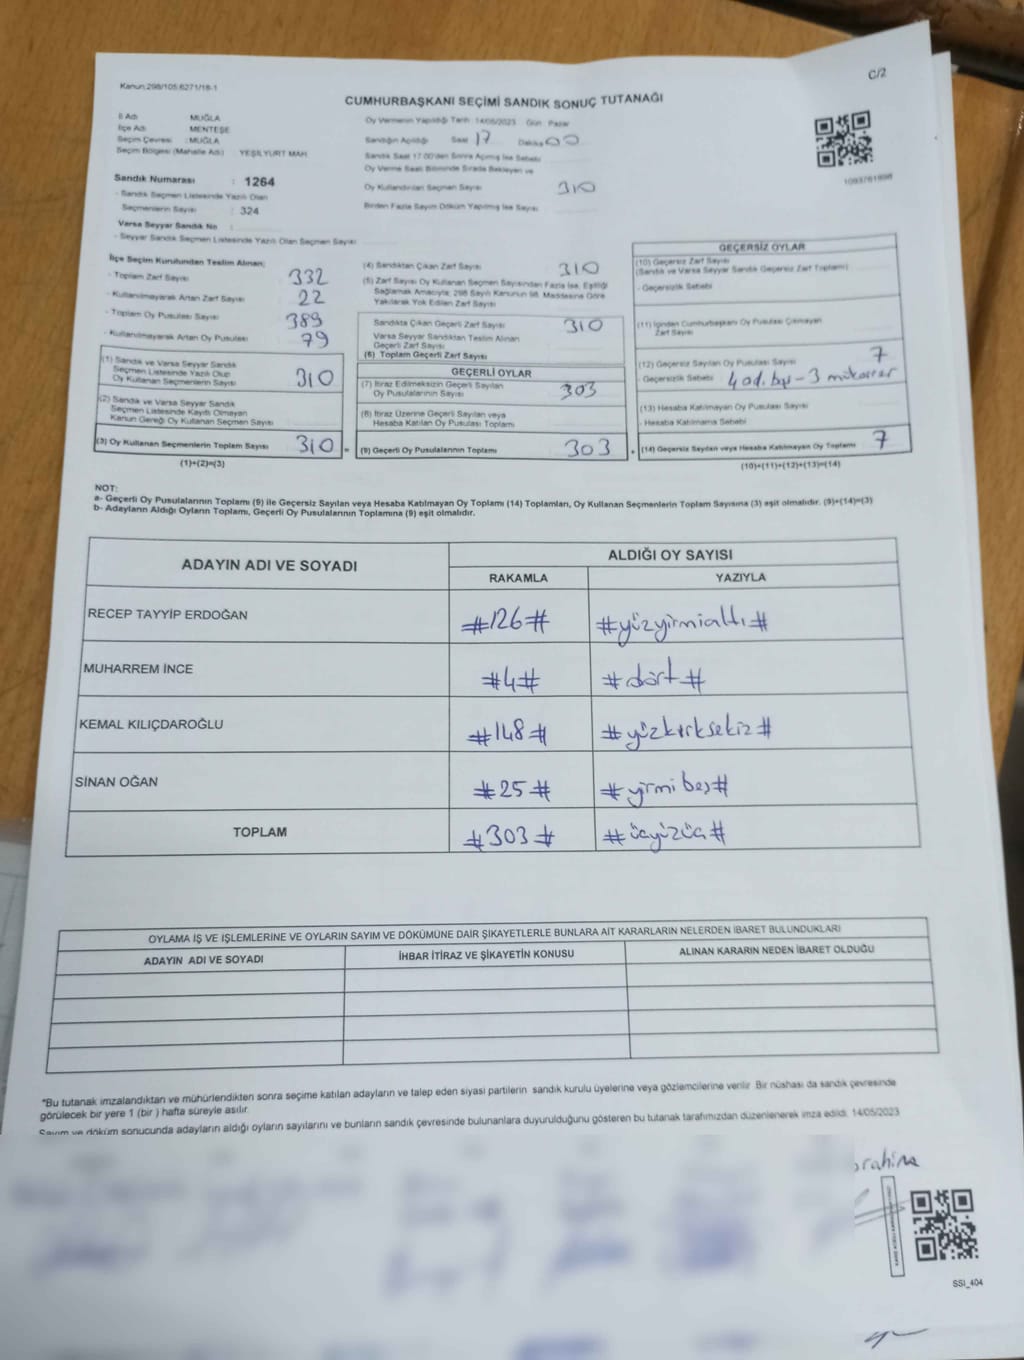 Kanun:298/105:6271/18-1
C/2
CUMHURBAŞKANI SEÇİMİ SANDIK SONUÇ TUTANAĞI
İl Adı MUĞLA
İlçe Adı MENTEŞE
Seçim Çevresi : MUĞLA
Seçim Bölgesi (Mahalle Adı) : YEŞİLYURT MAH.
Sandık Numarası : 1264
- Sandık Seçmen Listesinde Yazılı Olan
Seçmenlerin Sayısı : 324
Varsa Seyyar Sandık No :
- Seyyar Sandık Seçmen Listesinde Yazılı Olan Seçmen Sayısı
Oy Vermenin Yapıldığı Tarih : 14/05/2023 Gün : Pazar
Sandığın Açıldığı Saat 17 Dakika 00
Sandık Saat 17.00'den Sonra Açılmış İse Sebebi
Oy Verme Saati Bitiminde Sırada Bekleyen ve
Oy Kullandırılan Seçmen Sayısı 310
Birden Fazla Sayım Döküm Yapılmış İse Sayısı
1093761998
İlçe Seçim Kurulundan Teslim Alınan;
- Toplam Zarf Sayısı 332
- Kullanılmayarak Artan Zarf Sayısı 22
- Toplam Oy Pusulası Sayısı 389
- Kullanılmayarak Artan Oy Pusulası 79
(1) Sandık ve Varsa Seyyar Sandık
Seçmen Listesinde Yazılı Olup
Oy Kullanan Seçmenlerin Sayısı 310
(2) Sandık ve Varsa Seyyar Sandık
Seçmen Listesinde Kayıtlı Olmayan
Kanun Gereği Oy Kullanan Seçmen Sayısı
(3) Oy Kullanan Seçmenlerin Toplam Sayısı 310 =
(1)+(2)=(3)
(4) Sandıktan Çıkan Zarf Sayısı 310
(5) Zarf Sayısı Oy Kullanan Seçmen Sayısından Fazla İse, Eşitliği
Sağlamak Amacıyla, 298 Sayılı Kanunun 98. Maddesine Göre
Yakılarak Yok Edilen Zarf Sayısı
Sandıkta Çıkan Geçerli Zarf Sayısı 310
Varsa Seyyar Sandıktan Teslim Alınan
Geçerli Zarf Sayısı
(6) Toplam Geçerli Zarf Sayısı
GEÇERLİ OYLAR
(7) İtiraz Edilmeksizin Geçerli Sayılan
Oy Pusulalarının Sayısı 303
(8) İtiraz Üzerine Geçerli Sayılan veya
Hesaba Katılan Oy Pusulası Toplamı
(9) Geçerli Oy Pusulalarının Toplamı 303 +
GEÇERSİZ OYLAR
(10) Geçersiz Zarf Sayısı
(Sandık ve Varsa Seyyar Sandık Geçersiz Zarf Toplamı)
- Geçersizlik Sebebi
(11) İçinden Cumhurbaşkanı Oy Pusulası Çıkmayan
Zarf Sayısı
(12) Geçersiz Sayılan Oy Pusulası Sayısı 7
- Geçersizlik Sebebi 4 ad. boş - 3 mükerrer
(13) Hesaba Katılmayan Oy Pusulası Sayısı
- Hesaba Katılmama Sebebi
(14) Geçersiz Sayılan veya Hesaba Katılmayan Oy Toplamı 7
(10)+(11)+(12)+(13)=(14)
NOT:
a- Geçerli Oy Pusulalarının Toplamı (9) ile Geçersiz Sayılan veya Hesaba Katılmayan Oy Toplamı (14) Toplamları, Oy Kullanan Seçmenlerin Toplam Sayısına (3) eşit olmalıdır. (9)+(14)=(3)
b- Adayların Aldığı Oyların Toplamı, Geçerli Oy Pusulalarının Toplamına (9) eşit olmalıdır.
ADAYIN ADI VE SOYADI
ALDIĞI OY SAYISI
RAKAMLA YAZIYLA
RECEP TAYYİP ERDOĞAN #126# #yüzyirmialtı#
MUHARREM İNCE #4# #dört#
KEMAL KILIÇDAROĞLU #148# #yüzkırksekiz#
SİNAN OĞAN #25# #yirmibeş#
TOPLAM #303# #üçyüzüç#
OYLAMA İŞ VE İŞLEMLERİNE VE OYLARIN SAYIM VE DÖKÜMÜNE DAİR ŞİKAYETLERLE BUNLARA AİT KARARLARIN NELERDEN İBARET BULUNDUKLARI
ADAYIN ADI VE SOYADI İHBAR İTİRAZ VE ŞİKAYETİN KONUSU ALINAN KARARIN NEDEN İBARET OLDUĞU
*Bu tutanak imzalandıktan ve mühürlendikten sonra seçime katılan adayların ve talep eden siyasi partilerin sandık kurulu üyelerine veya gözlemcilerine verilir. Bir nüshası da sandık çevresinde
görülecek bir yere 1 (bir ) hafta süreyle asılır.
Sayım ve döküm sonucunda adayların aldığı oyların sayılarını ve bunların sandık çevresinde bulunanlara duyurulduğunu gösteren bu tutanak tarafımızdan düzenlenerek imza edildi. 14/05/2023
brahim
SSI_404